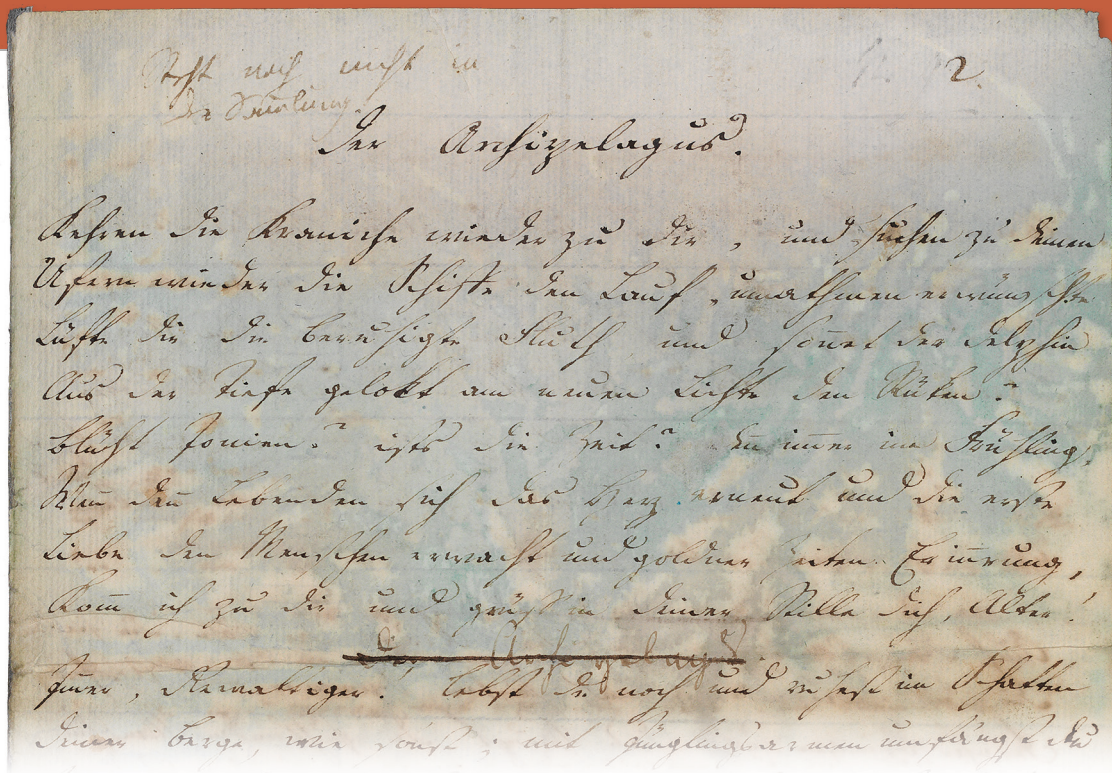 Steht noch nicht in
der Sam̄lung.
2.
Der Archipelagus.
Kehren die Kraniche wieder zu dir, und suchen zu deinen
Ufern wieder die Schiffe den Lauf, umathmen erwünschte
Lüfte dir die beruhigte Fluth und soñet der Delphin
Aus der Tiefe gelokt am neuen Lichte den Rüken?
Blüht Jonien? ists die Zeit? deñ im̄er im Frühling,
Weñ den Lebenden sich das Herz erneut und die erste
Liebe den Menschen erwacht und goldner Zeiten Eriñrung,
Kom̄ ich zu dir und grüß in deiner Stille dich, Alter!
Der Archipelagus
Im̄er, Gewaltiger! lebst du noch und ruhest im Schatten
Deiner Berge, wie sonst; mit Jünglingsarmen umfängst du